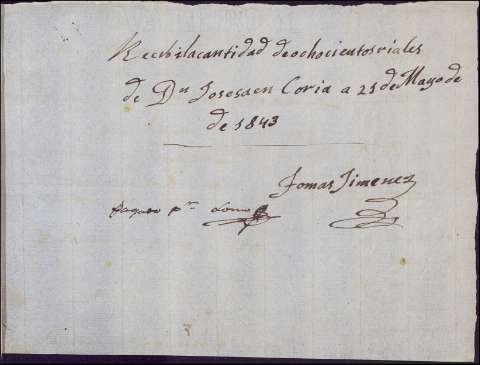 Recibi la cantidad de ochocientos riales
de Dn Jose saen Coria a 21 de Mayo de
de 1843
Tomas Jimenez
pr